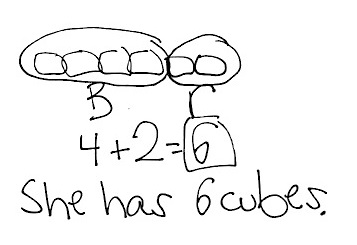 B r
4+2=6
She has 6 cubes.